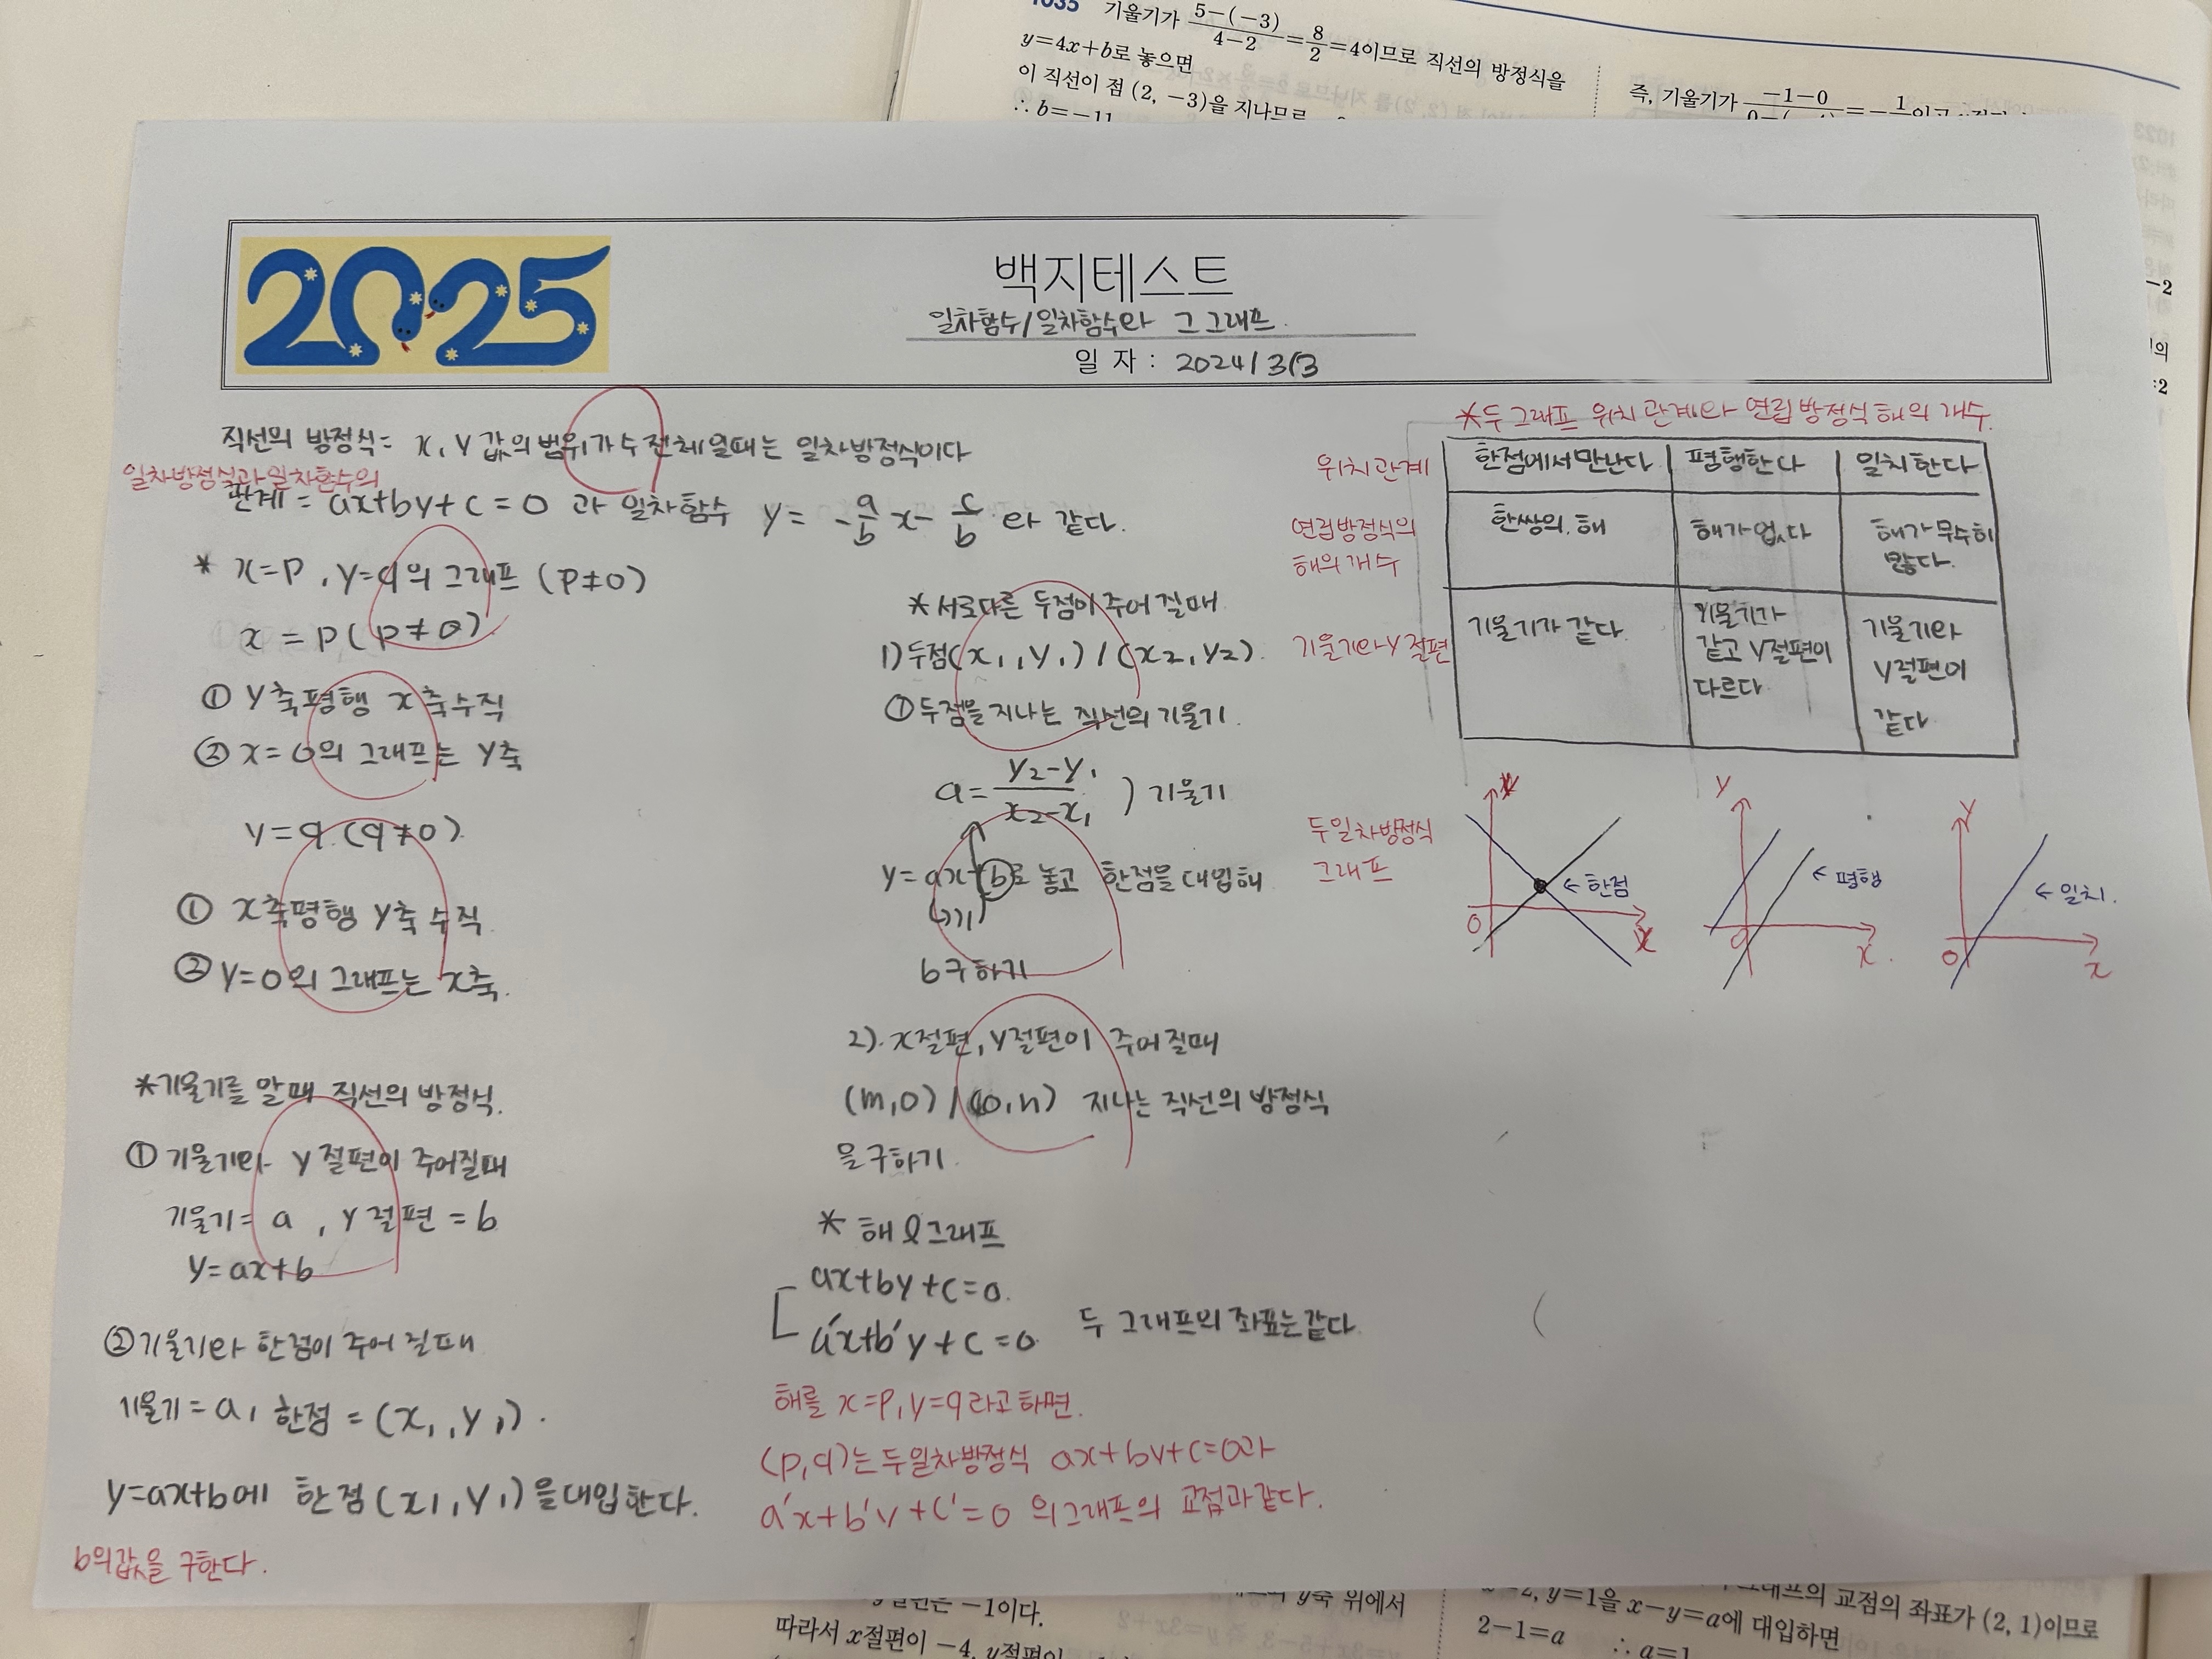 1035 기울기가 5-(-3)/4-2=8/2=4이므로 직선의 방정식을
y=4x+b로 놓으면
이 직선이 점 (2, -3)을 지나므로
∴ b=-11
즉, 기울기가 -1-0
2025
백지테스트
일차함수/일차함수와 그 그래프
일 자 : 2024/3/3
직선의 방정식= x, y 값의 범위가 수 전체일때는 일차방정식이다
일차방정식과 일차함수의
관계 = ax+by+c=0 과 일차함수 y= -a/b x- c/b 와 같다.
* x=p, y=q의 그래프 (p≠0)
x = p (p≠0)
① y축평행 x축수직
② x=0의 그래프는 y축
y=q (q≠0)
① x축평행 y축수직
② y=0의 그래프는 x축.
*기울기를 알때 직선의 방정식.
① 기울기와 y절편이 주어질때
기울기= a, y절편 = b
y=ax+b
② 기울기와 한점이 주어질때
기울기= a, 한점 = (x₁, y₁).
y=ax+b에 한점(x₁, y₁)을대입한다.
b의값을 구한다.
* 서로다른 두점이 주어 질때
1) 두점(x₁, y₁) / (x₂, y₂).
① 두점을 지나는 직선의 기울기.
a= y₂-y₁/x₂-x₁ ) 기울기
y=ax+b로 놓고 한점을 대입해
b구하기
2). x절편, y절편이 주어 질때
(m,0) / (0,n) 지나는 직선의 방정식
을구하기.
* 해 & 그래프
ax+by+c=0.
a'x+b'y+c=0 두 그래프의 좌표는같다.
해를 x=p, y=q 라고 하면.
(p,q)는 두일차방정식 ax+by+c=0과
a'x+b'y+c'=0 의그래프의 교점과같다.
*두그래프 위치 관계와 연립방정식 해의 개수.
위치관계 한점에서만난다 평행한다 일치한다
연립방정식의 해의개수 한쌍의 해 해가 없다 해가 무수히 많다.
기울기와 y절편 기울기가 같다. 기울기가 같고 y절편이 다르다 기울기와 y절편이 같다
두일차방정식 그래프
y ←한점 0 x
y ←평행 0 x
y ←일치. 0 x
-1이다.
따라서 x절편이 -4, y절편이
y축 위에서
그래프의 교점의 좌표가 (2, 1)이므로
y=1을 x-y=a에 대입하면
2-1=a ∴ a=1